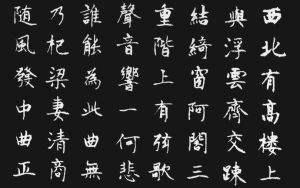 西北有高樓上
與浮雲齊交踈
結綺窗阿閣三
重階上有弦歌
聲音響一何悲
誰能為此曲無
乃杞梁妻清商
隨風發中曲正